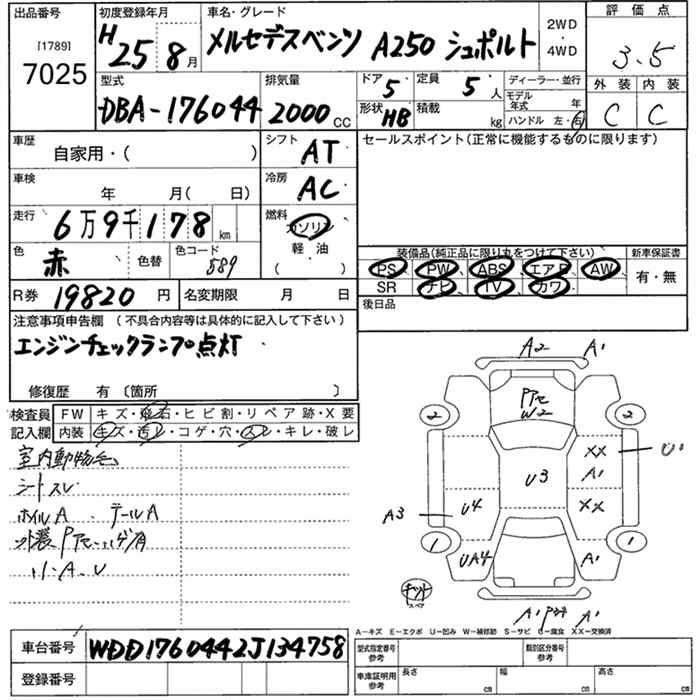 出品番号 初度登録年月 車名・グレード 2WD・4WD 評価点
[1789]
7025 H 25 8月 メルセデスベンツ A250 シュポルト 3.5
型式 排気量 ドア 5 定員 5人 ディーラー・並行 外装 内装
DBA-176044 2000CC 形状 HB 積載 kg モデル年式 年 C C
ハンドル 左・右
車歴 シフト セールスポイント(正常に機能するものに限ります)
自家用・( ) AT
車検 冷房
年 月( 日) AC
走行 燃料
6万9千178km ガソリン
軽・油
( ・ )
色 色替 色コード 装備品(純品に限り丸をつけて下さい) 新車保証書
赤 589 PS PW ABS エアB AW 有・無
SR ナビ TV カワ
R券 19820円 名変期限 月 日 後日品
注意事項申告欄 (不具合内容等は具体的に記入して下さい)
エンジンチェックランプ点灯
修復歴 有 〔箇所 〕
検査員 FW キズ・飛石・ヒビ割・リペア跡・X要
記入欄 内装 キズ・汚レ・コゲ・穴・スレ・キレ・破レ
室内動物臭
シートスレ
ホイルA テールA
小・A・U
A2 A1
2 2
W2
XX U1
U3 A1
A3 U4 XX
1 1
UA4 A1
スペア
A1 A1
A-キズ E-エクボ U-凹み W-補修跡 S-サビ C-腐食 XX-交換済
車台番号 WDD1760442J134758 型式指定番号 参考 類別区分番号 参考
登録番号 車庫証明用 参考 長さ cm 幅 cm 高さ cm